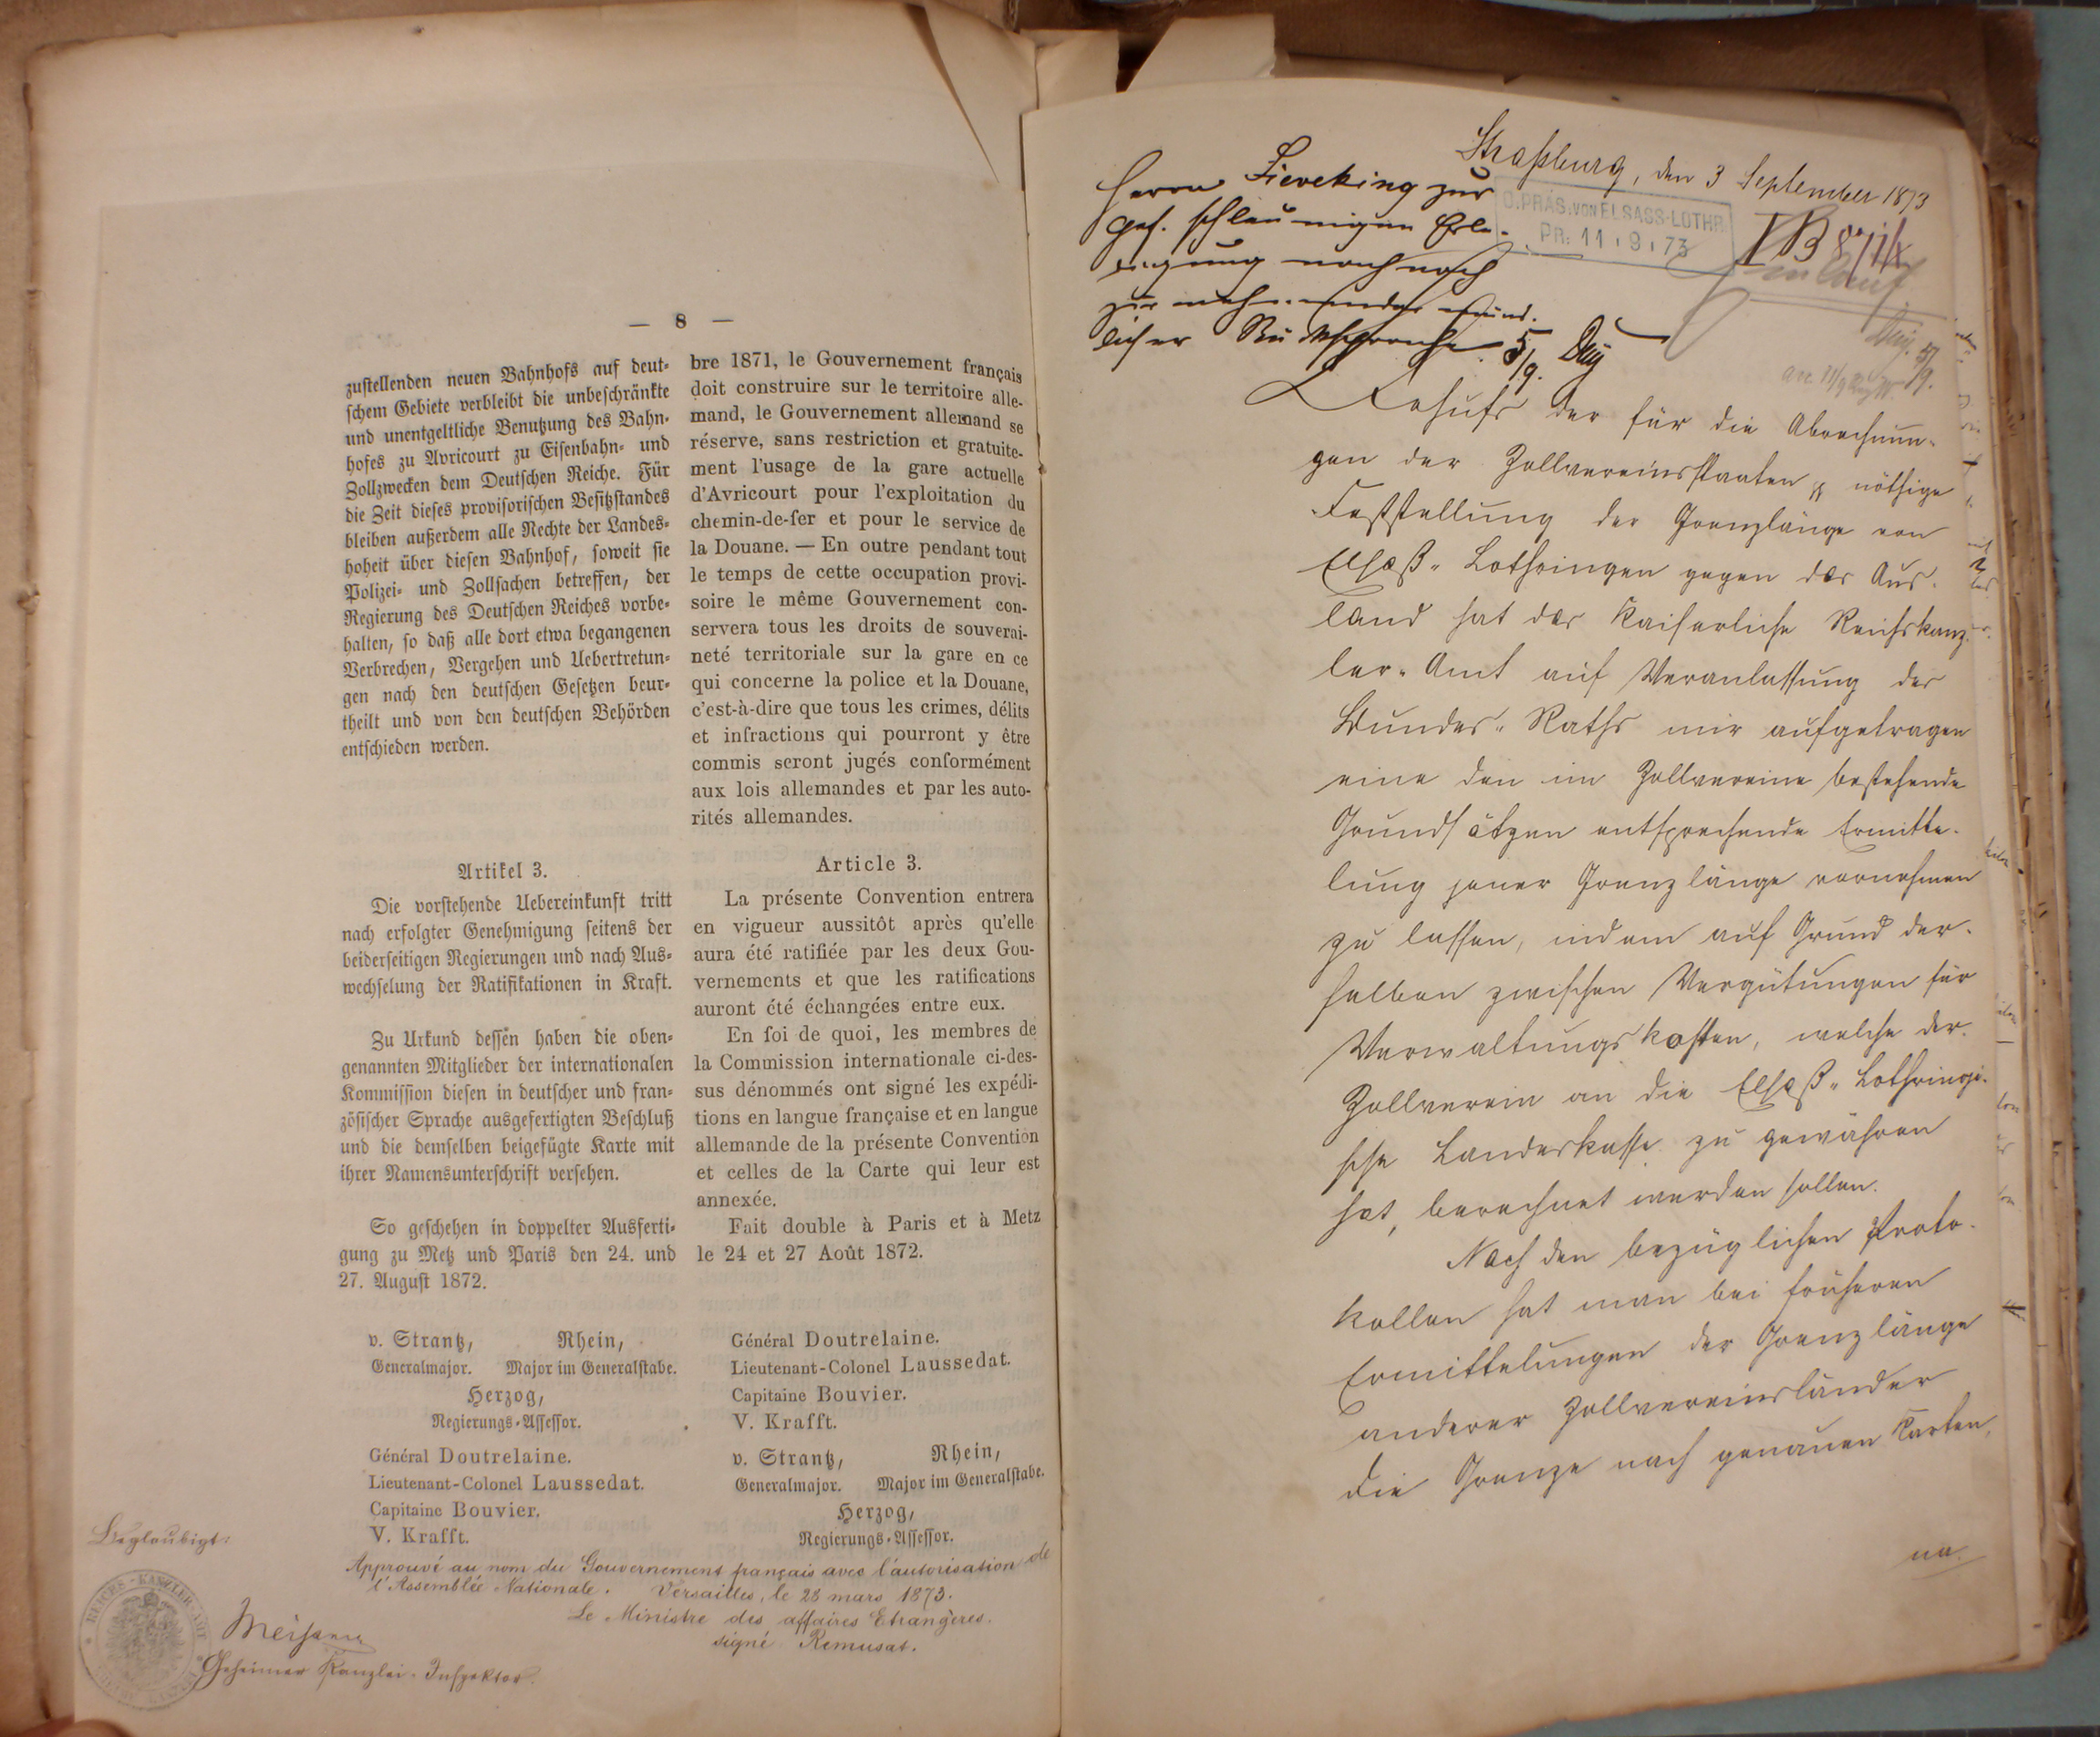 — 8 —
zustellenden neuen Bahnhofs auf deut-
schem Gebiete verbleibt die unbeschränkte
und unentgeltliche Benutzung des Bahn-
hofes zu Avricourt zu Eisenbahn- und
Zollzwecken dem Deutschen Reiche. Für
die Zeit dieses provisorischen Besitzstandes
bleiben außerdem alle Rechte der Landes-
hoheit über diesen Bahnhof, soweit sie
Polizei- und Zollsachen betreffen, der
Regierung des Deutschen Reiches vorbe-
halten, so daß alle dort etwa begangenen
Verbrechen, Vergehen und Uebertretun-
gen nach den deutschen Gesetzen beur-
theilt und von den deutschen Behörden
entschieden werden.
Artikel 3.
Die vorstehende Uebereinkunft tritt
nach erfolgter Genehmigung seitens der
beiderseitigen Regierungen und nach Aus-
wechselung der Ratifikationen in Kraft.
Zu Urkund dessen haben die oben-
genannten Mitglieder der internationalen
Kommission diesen in deutscher und fran-
zösischer Sprache ausgefertigten Beschluß
und die demselben beigefügte Karte mit
ihrer Namensunterschrift versehen.
So geschehen in doppelter Ausferti-
gung zu Metz und Paris den 24. und
27. August 1872.
v. Strantz, Rhein,
Generalmajor. Major im Generalstabe.
Herzog,
Regierungs-Assessor.
Général Doutrelaine.
Lieutenant-Colonel Laussedat.
Capitaine Bouvier.
V. Krafft.
bre 1871, le Gouvernement français
doit construire sur le territoire alle-
mand, le Gouvernement allemand se
réserve, sans restriction et gratuite-
ment l'usage de la gare actuelle
d'Avricourt pour l'exploitation du
chemin-de-fer et pour le service de
la Douane. — En outre pendant tout
le temps de cette occupation provi-
soire le même Gouvernement con-
servera tous les droits de souverai-
neté territoriale sur la gare en ce
qui concerne la police et la Douane,
c'est-à-dire que tous les crimes, délits
et infractions qui pourront y être
commis seront jugés conformément
aux lois allemandes et par les auto-
rités allemandes.
Article 3.
La présente Convention entrera
en vigueur aussitôt après qu'elle
aura été ratifiée par les deux Gou-
vernements et que les ratifications
auront été échangées entre eux.
En foi de quoi, les membres de
la Commission internationale ci-des-
sus dénommés ont signé les expédi-
tions en langue française et en langue
allemande de la présente Convention
et celles de la Carte qui leur est
annexée.
Fait double à Paris et à Metz
le 24 et 27 Août 1872.
Général Doutrelaine.
Lieutenant-Colonel Laussedat.
Capitaine Bouvier.
V. Krafft.
v. Strantz, Rhein,
Generalmajor. Major im Generalstabe.
Herzog,
Regierungs-Assessor.
Approuvé au nom du Gouvernement français avec l'autorisation de
l'Assemblée Nationale. Versailles, le 28 mars 1873.
Le Ministre des affaires Etrangères.
signé Remusat.
Beglaubigt:
REICHS-KANZLER-AMT
Geheimer Kanzlei-Inspektor.
Straßburg, den 3 September 1873
O. PRÄS. VON ELSASS-LOTHR.
PR: 11 . 9 . 73
IB
Herrn Sieveking zur
gef. schleunigen Erle-
digung nach noch
zu nehmender münd-
licher Rücksprache. 5/9.
5/9.
Behufs der für die Abrechnun-
gen der Zollvereinsstaaten nöthige
Feststellung der Grenzlänge von
Elsaß-Lothringen gegen das Aus-
land hat das Kaiserliche Reichskanz-
ler-Amt auf Veranlassung des
Bundes-Raths mir aufgetragen
eine den im Zollvereine bestehende
Grundsätzen entsprechende Ermitte-
lung jener Grenzlänge vornehmen
zu lassen, indem auf Grund der-
selben zwischen Vergütungen für
Verwaltungskosten, welche der
Zollverein an die Elsaß-Lothringi-
sche Landeskasse zu gewähren
hat, berechnet werden sollen.
Nach den bezüglichen Proto-
kollen hat man bei früheren
Ermittelungen der Grenzlänge
anderer Zollvereinsländer
die Grenze nach genauen Karten,